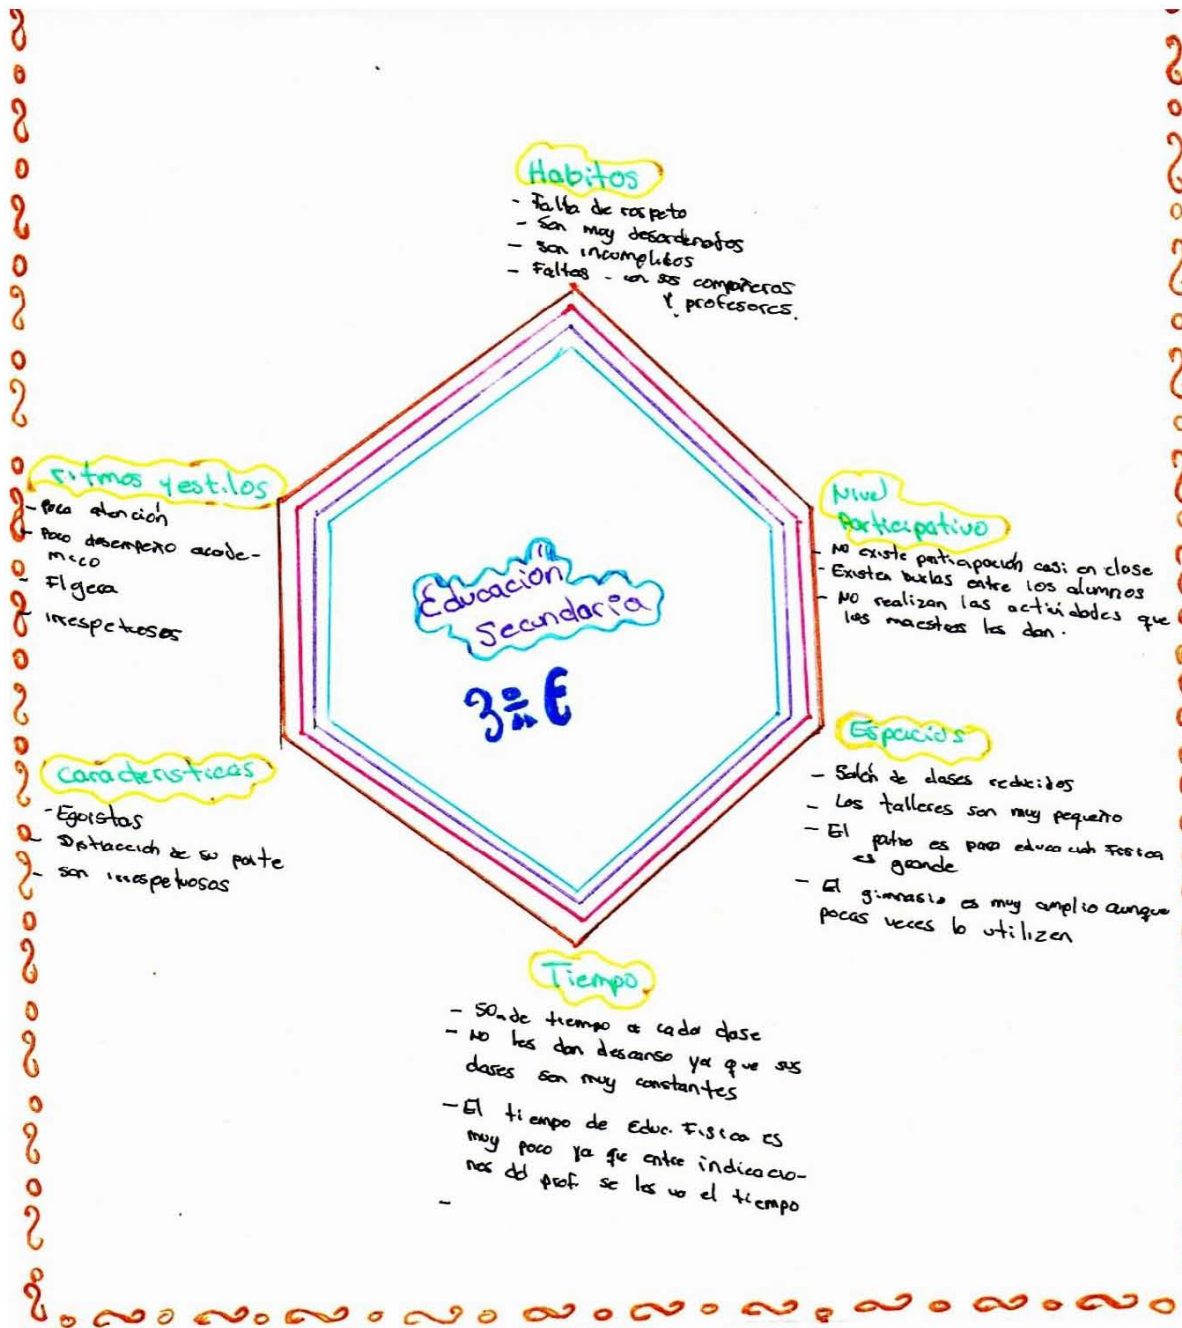 Habitos
- Falta de respeto
- Son muy desordenados
- son incumplidos
- Faltas - con sus compañeros
y profesores.
ritmos y estilos
- Poca atención
- Poco desempeño acade-
mico
- Flgera
- irrespetuosos
Nivel
Participativo
- No existe participación casi en clase
- Existen burlas entre los alumnos
- No realizan las actividades que
los maestros les dan.
Educación
Secundaria
3º "E"
Caracteristicas
- Egoistas
- Distracción de su parte
- son irrespetuosos
Espacios
- Salón de clases reducidos
- Los talleres son muy pequeño
- El patio es para educación Fisica
es grande
- El gimnasio es muy amplio aunque
pocas veces lo utilizen
Tiempo
- 50m de tiempo a cada clase
- No les dan descanso ya que sus
clases son muy constantes
- El tiempo de Educ. Fisica es
muy poco ya que entre indicacio-
nes del prof. se les va el tiempo
-